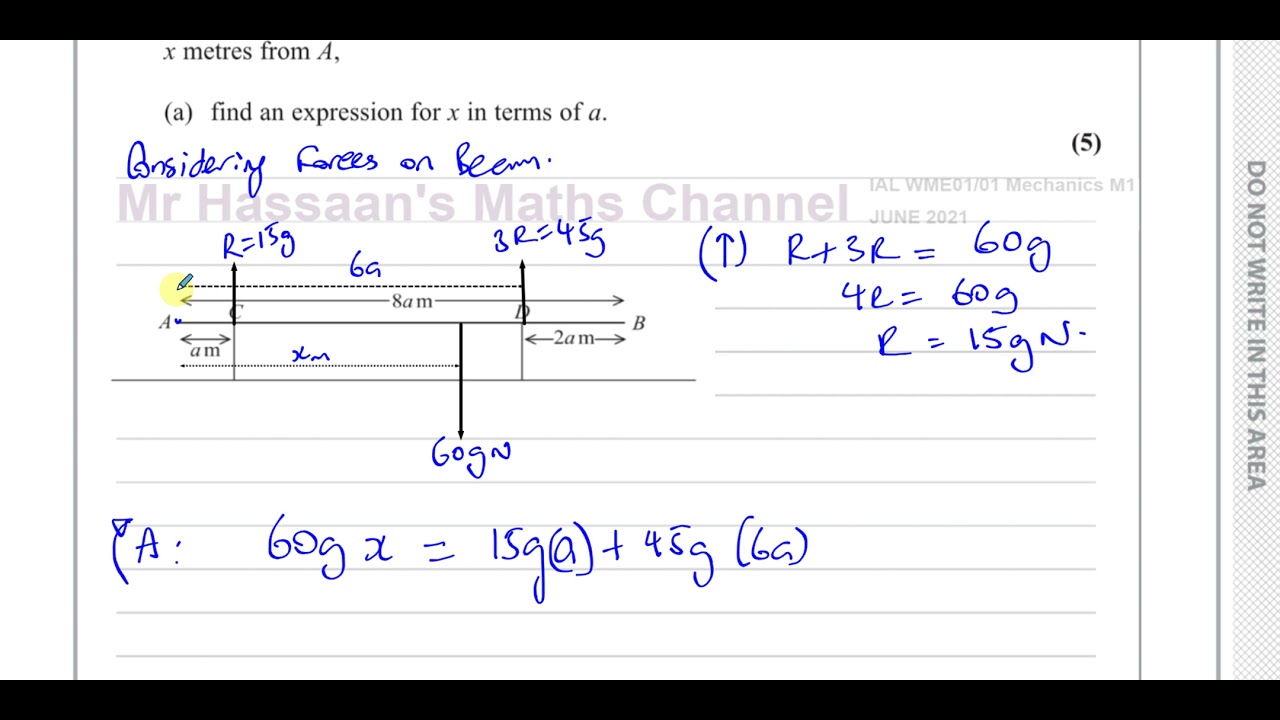 x metres from A,
(a) find an expression for x in terms of a.
(5)
Considering Forces on Beam.
Mr Hassaan's Maths Channel
IAL WME01/01 Mechanics M1
JUNE 2021
R=15g
3R=45g
6a
(↑) R+3R = 60g
8a m
4R = 60g
C
D
A
B
R = 15g N.
a m
2a m
x m
60gN
A: 60g x = 15g(a) + 45g (6a)
DO NOT WRITE IN THIS AREA